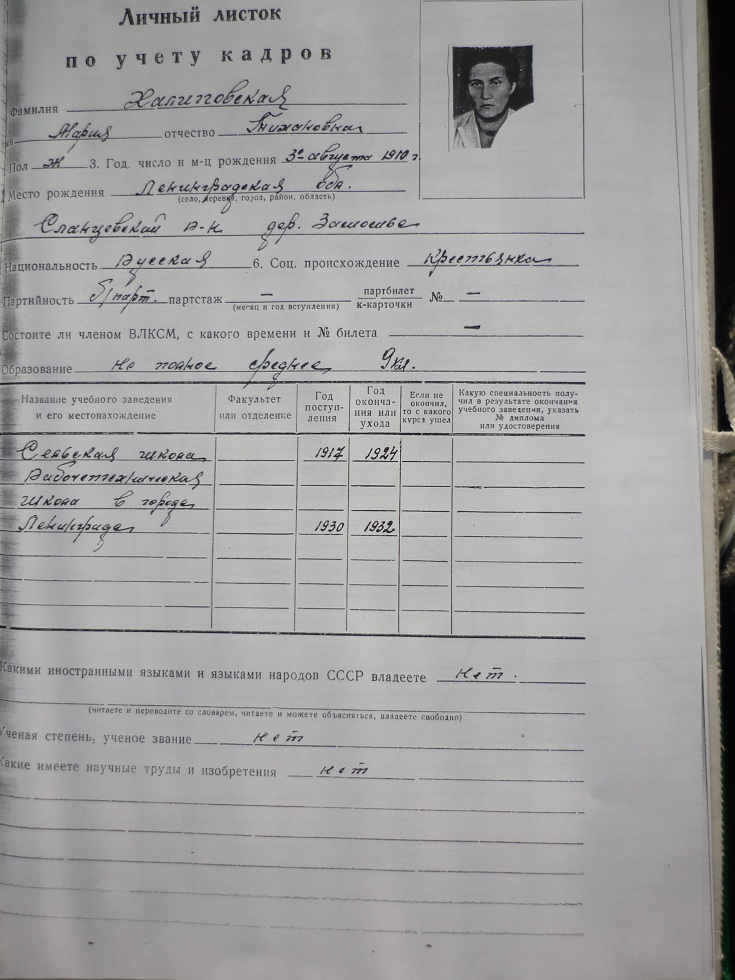 Личный листок
по учету кадров
Фамилия Халиповская
Мария отчество Тихоновна
Пол ж 3. Год, число и м-ц рождения 3го августа 1910 г.
Место рождения Ленинградская обл.
(село, деревня, город, район, область)
Сланцевский р-н дер. Замошье
Национальность Русская 6. Соц. происхождение Крестьянка
Партийность б/парт. партстаж — партбилет № —
(месяц и год вступления) к-карточки
Состоите ли членом ВЛКСМ, с какого времени и № билета —
Образование не полное среднее 9 кл.
Название учебного заведения и его местонахождение Факультет или отделение Год поступления Год окончания или ухода Если не окончил, то с какого курса ушел Какую специальность получил в результате окончания учебного заведения, указать № диплома или удостоверения
Сельская школа 1917 1924
Рабочетехническая
школа в городе
Ленинграде 1930 1932
Какими иностранными языками и языками народов СССР владеете нет.
(читаете и переводите со словарем, читаете и можете объясняться, владеете свободно)
Ученая степень, ученое звание нет
Какие имеете научные труды и изобретения нет